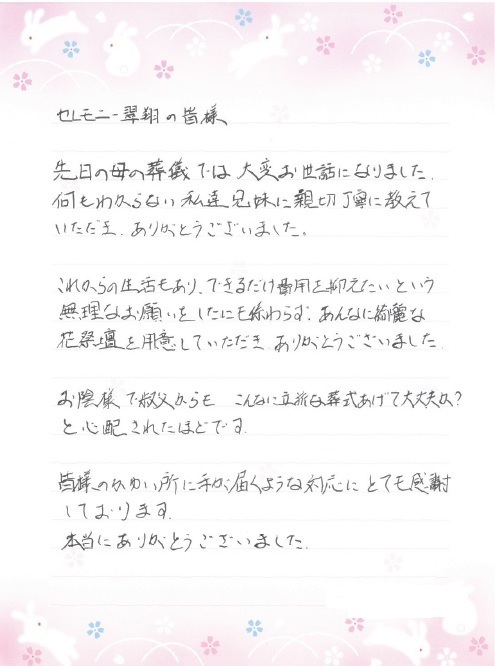 セレモニー翠翔の皆様、
先日の母の葬儀では大変お世話になりました.
何もわからない私達兄妹に親切丁寧に教えて
いただき、ありがとうございました。
これからの生活もあり、できるだけ費用を抑えたいという
無理なお願いをしたにも係わらず、あんなに綺麗な
花祭壇を用意していただき ありがとうございました.
お陰様で叔父からも こんなに立派な葬式あげて大丈夫か?
と心配されたほどです.
皆様のかゆい所に手が届くような対応に とても感謝
しております.
本当にありがとうございました.